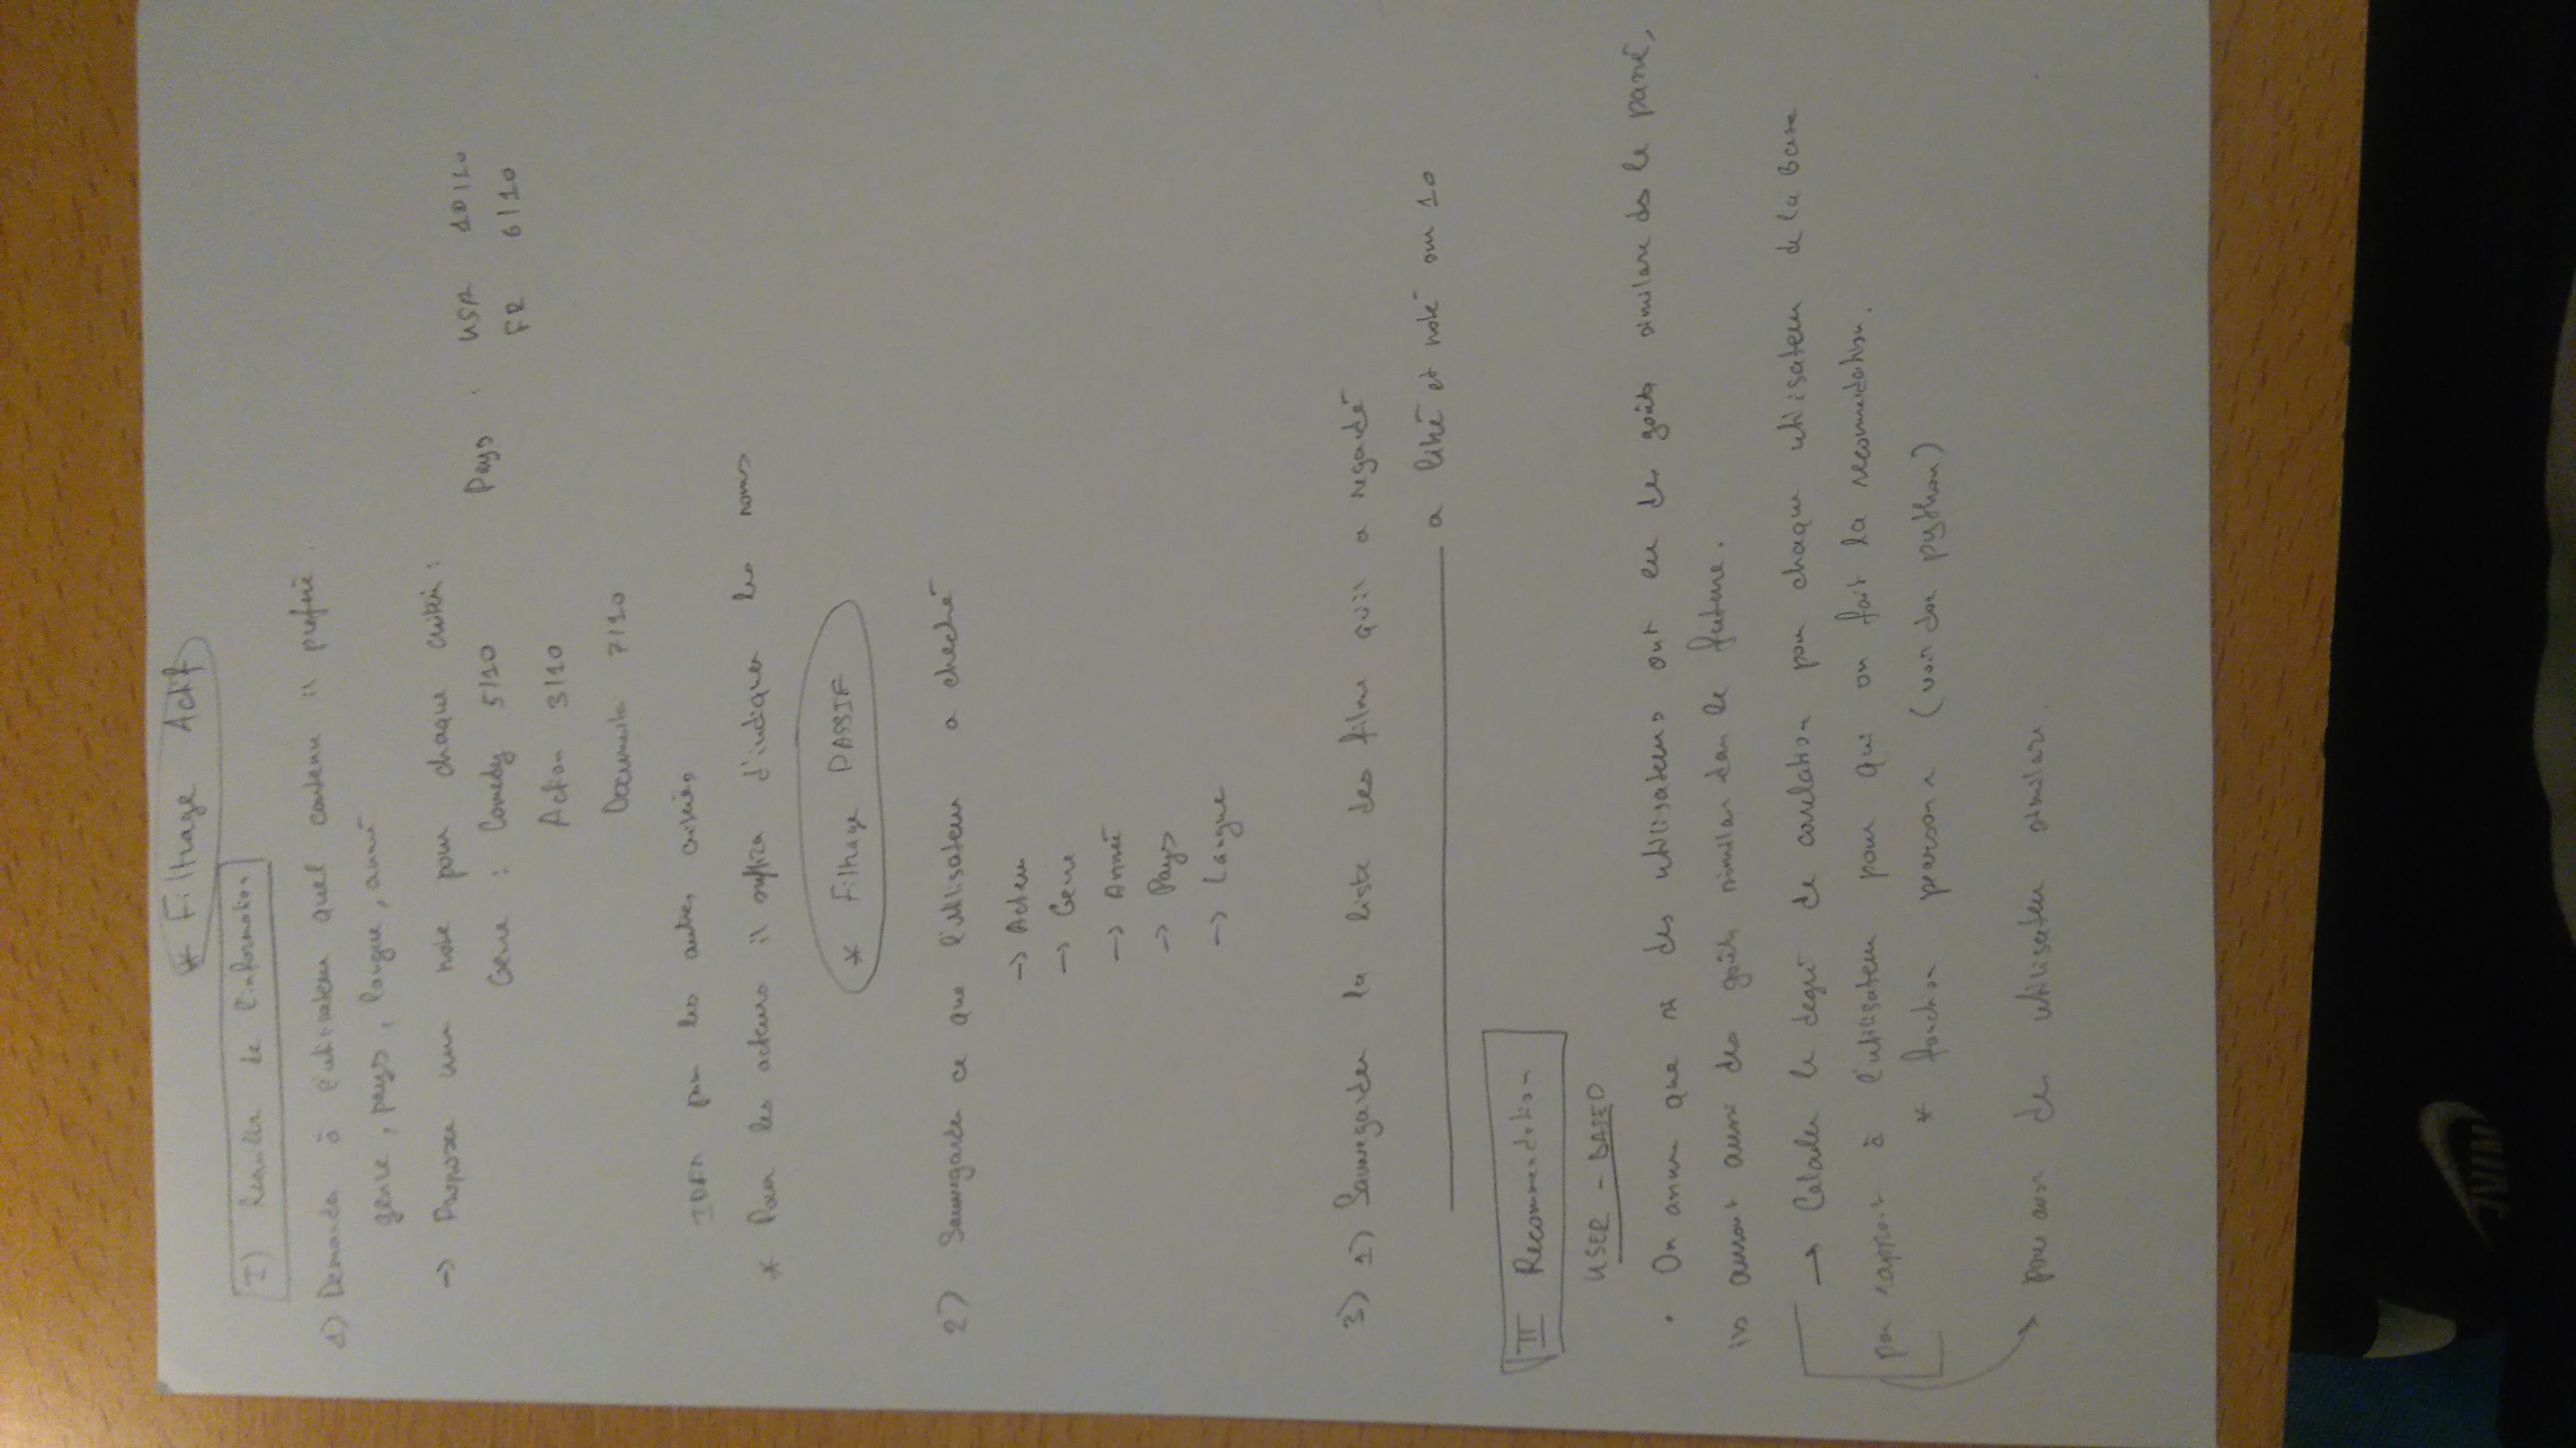 * Filtrage Actif
I) Recuillir de l'information
1) Demander à l'utilisateur quel contenu il préfère.
genre, pays, langue, année
-> Proposer une note pour chaque critère :
Genre : Comedy 5/10
Pays : USA 10/10
FR 6/10
Action 3/10
Documenta 7/10
IDEM pour les autres critères
* Pour les acteurs il suffira d'indiquer les noms
* Filtrage PASSIF
2) Sauvegarder ce que l'utilisateur a cheché
-> Acteur
-> Genre
-> Année
-> Pays
-> Langue
3) 1) Sauvegarder la liste des films qu'il a regardé
a liké et noté sur 10
II Recommendation
USER - BASED
• On assume que si des utilisateurs ont eu des goûts similare ds le passé,
ils auront aussi des goûts similar dan le future.
-> Calculer le degré de corrélation pour chaque utilisateur de la base
par rapport à l'utilisateur pour qui on fait la recommendation.
* fonction pearson (voir doc python)
-> pour avoir des utilisateur similare.
NIKE